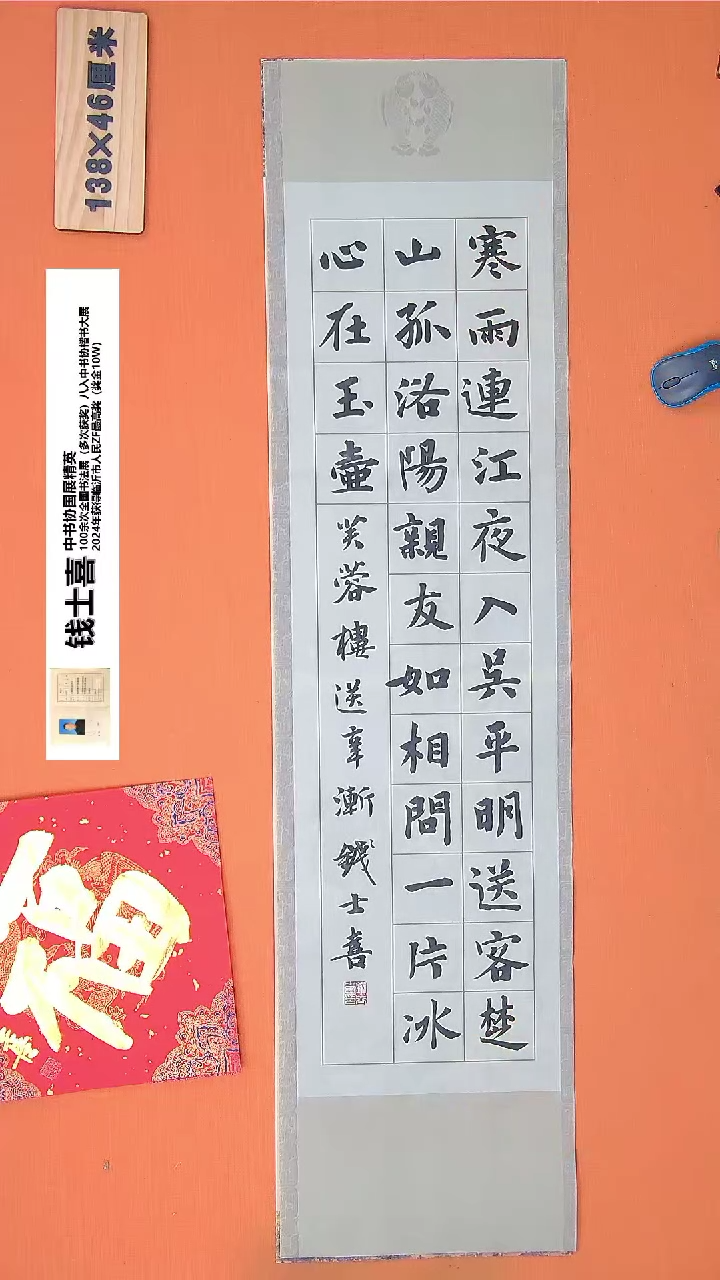 寒雨連江夜入吳平明送客楚
山孤洛陽親友如相問一片冰
心在玉壺
芙蓉樓送辛漸錢士喜
138×46厘米
钱士喜
中书协国展精英
100余次全国书法展（多次获奖）八入中书协楷书大展
2024年获得临沂市人民ZF最高奖（奖金10W）
福